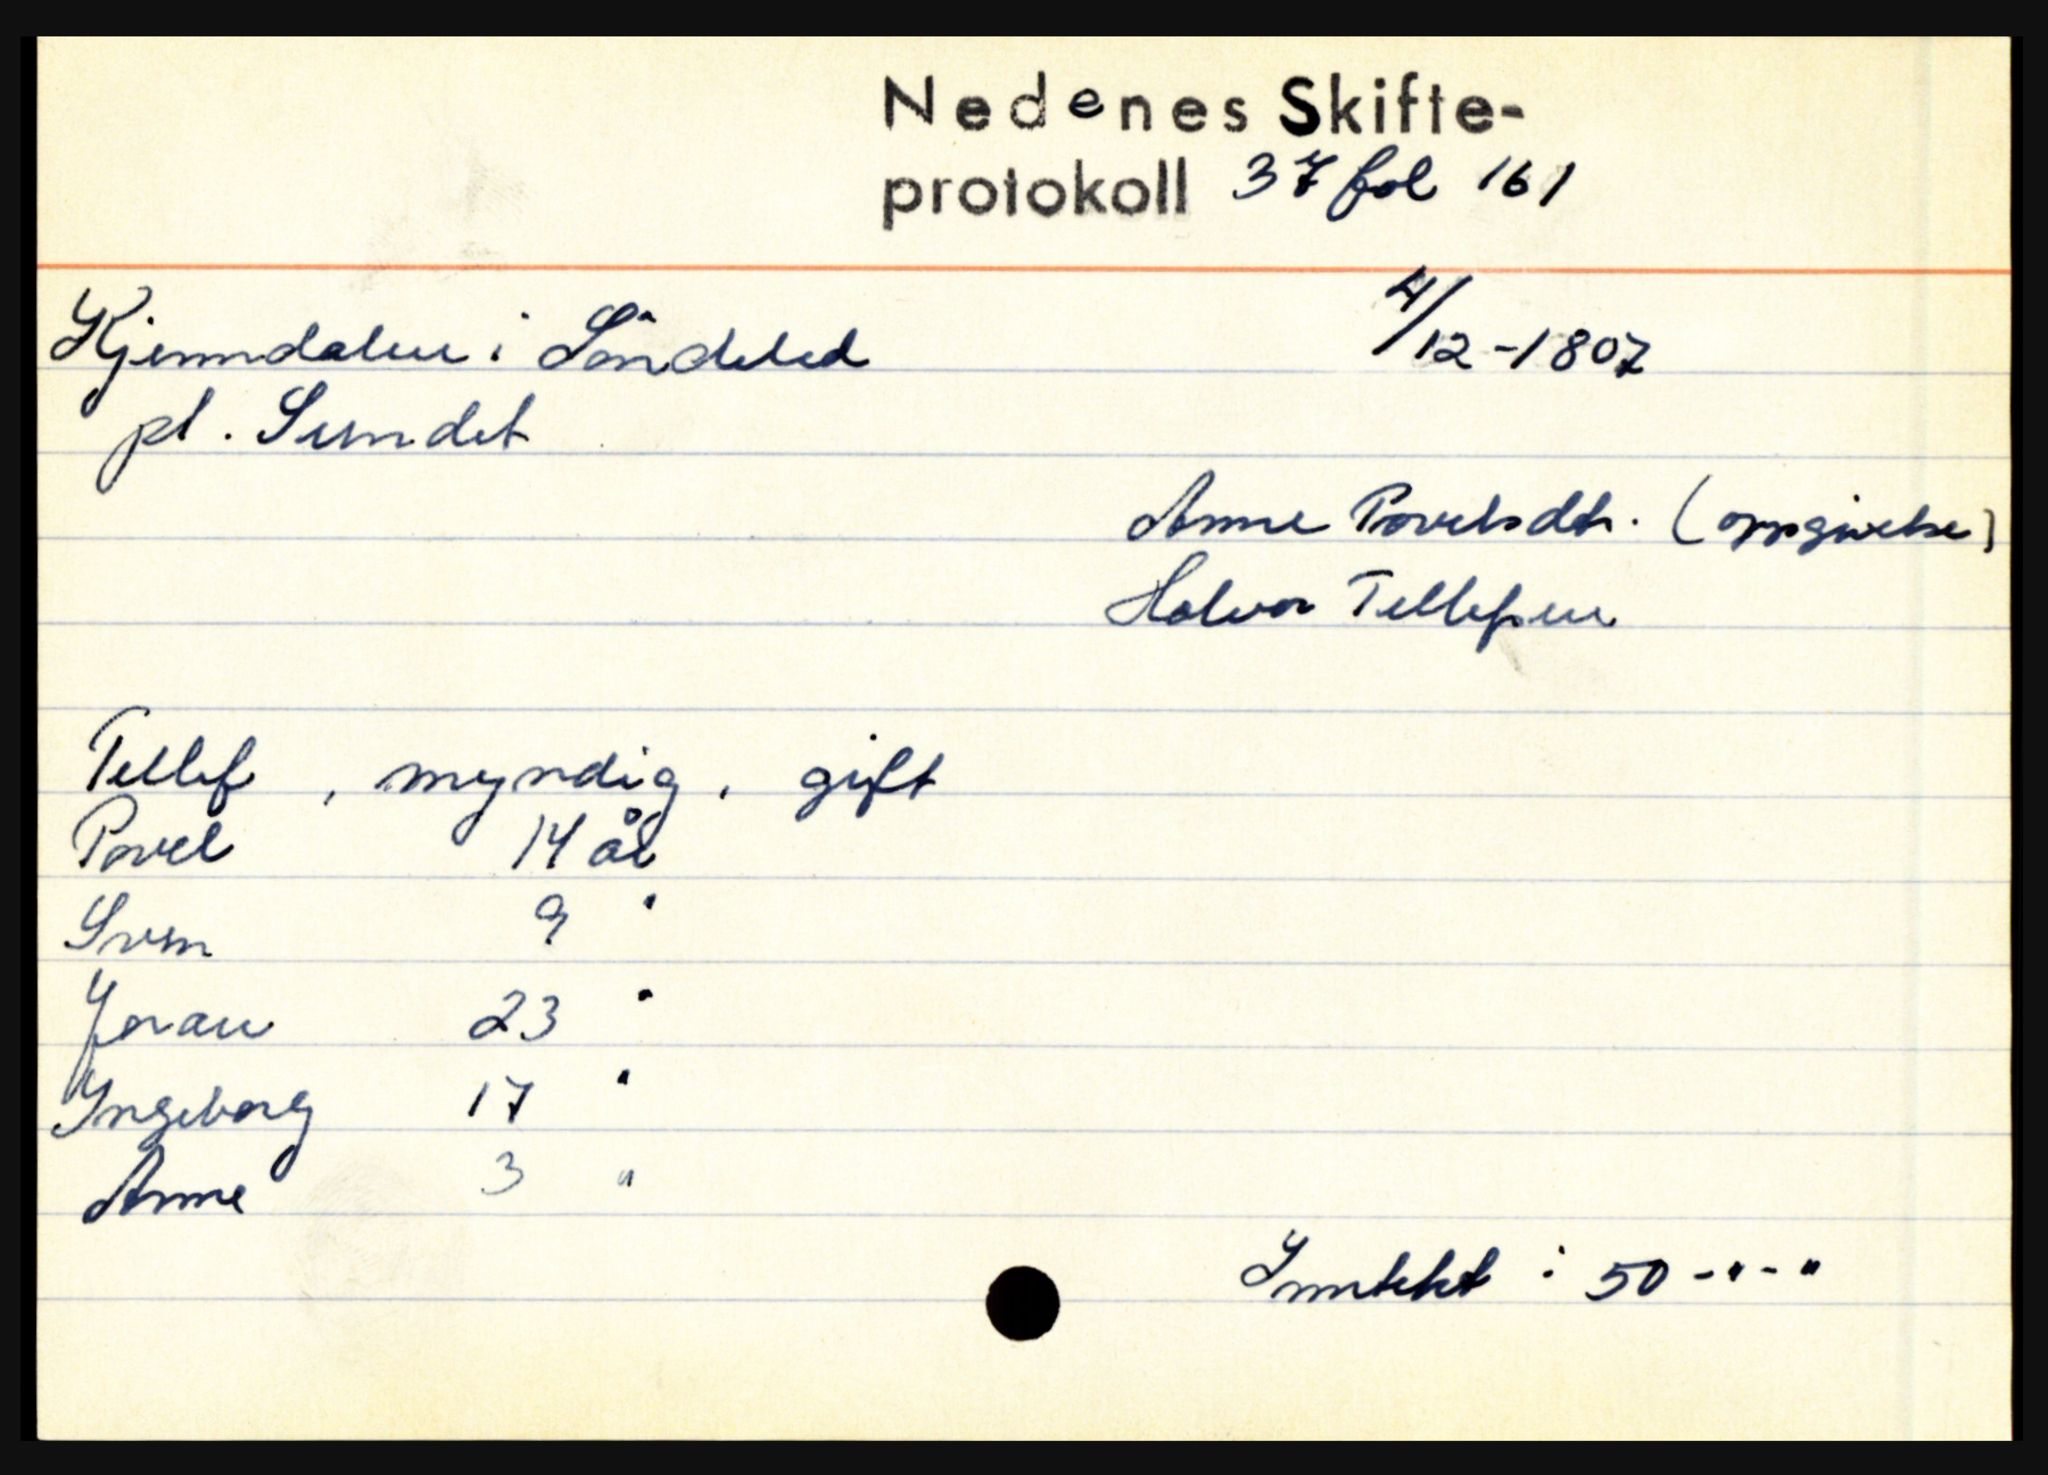 Nedenes Skifte-
protokoll 37 fol 161
Kjenndalen i Söndeled 4/12-1807
pl. Sundet
Anne Povelsdtr. (oppgivelse)
Halvor Tellefsen
Tellef, myndig, gift
Povel 14 år
Sven 9 "
Joran 23 "
Ingeborg 17 "
Anne 3 "
Inntekt : 50-"-"